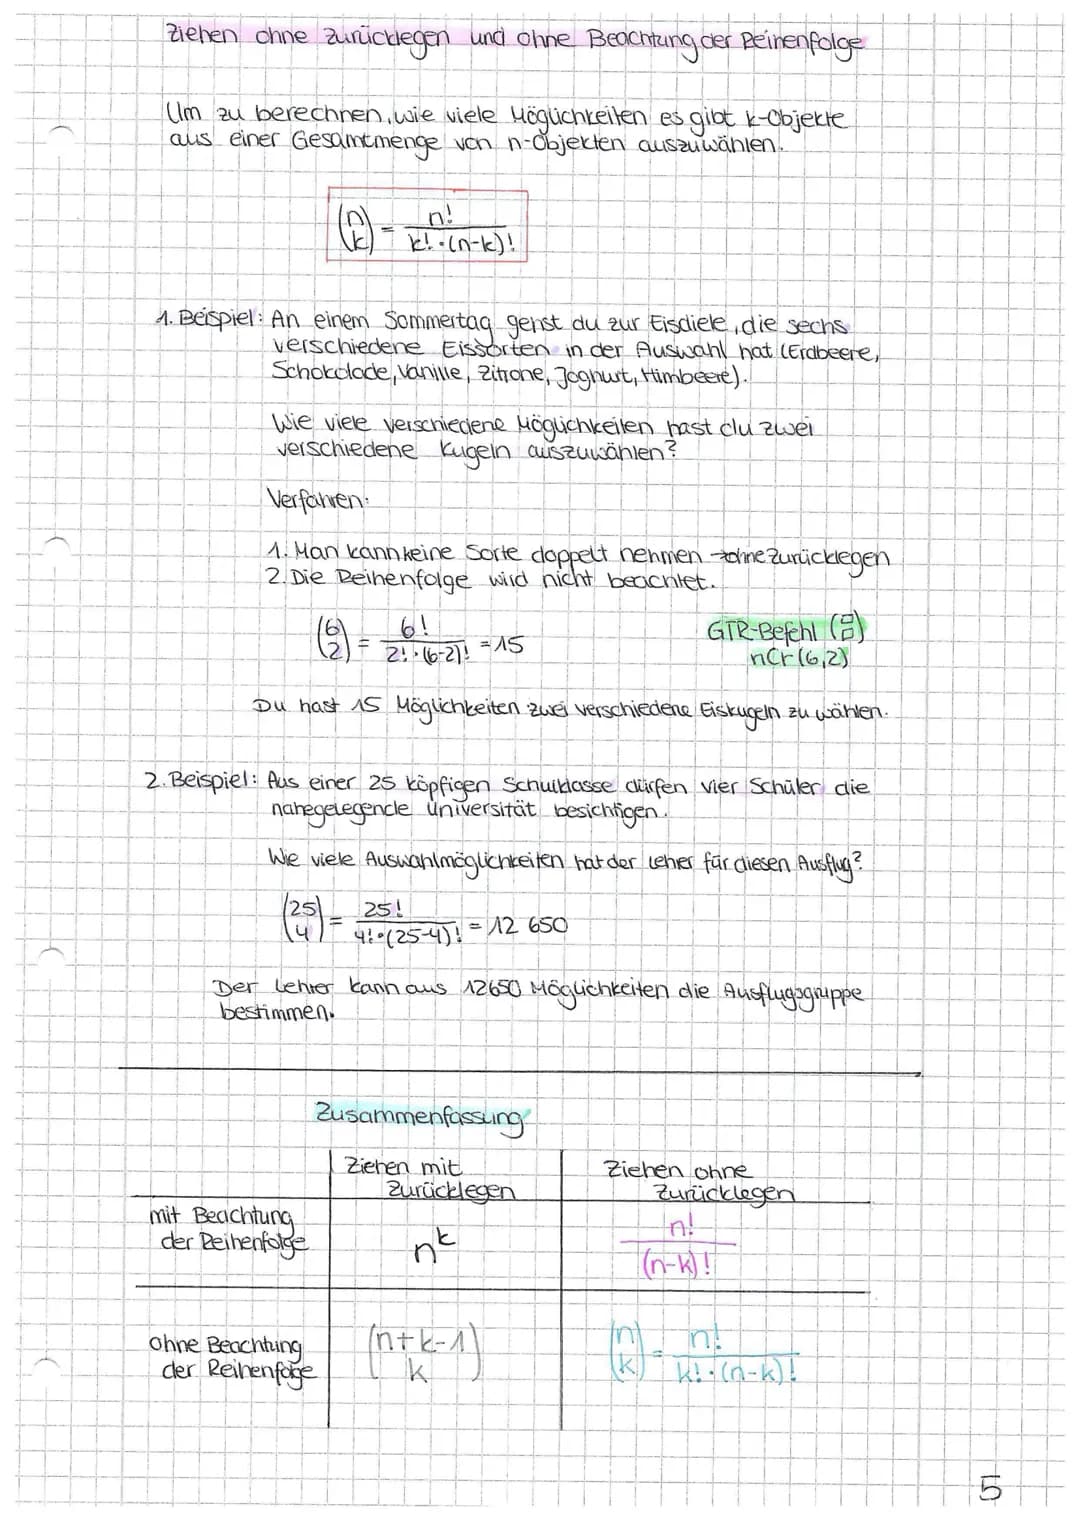 Ziehen ohne Zurücklegen und ohne Beachtung der Reihenfolge
Um zu berechnen, wie viele Möglichkeiten es gibt k-Objekte
aus einer Gesamtmenge von n-Objekten auszuwählen.
(n k) = n! / k!·(n-k)!
1. Beispiel: An einem Sommertag gehst du zur Eisdiele, die sechs
verschiedene Eissorten in der Auswahl hat (Erdbeere,
Schokolade, Vanille, Zitrone, Joghurt, Himbeere).
Wie viele verschiedene Möglichkeiten hast du zwei
verschiedene Kugeln auszuwählen?
Verfahren:
1. Man kann keine Sorte doppelt nehmen → ohne Zurücklegen
2. Die Reihenfolge wird nicht beachtet.
(6 2) = 6! / 2!·(6-2)! = 15
GTR-Befehl (□ □)
nCr(6,2)
Du hast 15 Möglichkeiten zwei verschiedene Eiskugeln zu wählen.
2. Beispiel: Aus einer 25 köpfigen Schulklasse dürfen vier Schüler die
nahegelegende Universität besichtigen.
Wie viele Auswahlmöglichkeiten hat der Leher für diesen Ausflug?
(25 4) = 25! / 4!·(25-4)! = 12 650
Der Lehrer kann aus 12650 Möglichkeiten die Ausflugsgruppe
bestimmen.
Zusammenfassung
Ziehen mit
Zurücklegen
Ziehen ohne
Zurücklegen
mit Beachtung
der Reihenfolge
n^k
n! / (n-k)!
Ohne Beachtung
der Reihenfolge
(n+k-1 k)
(n k) = n! / k!·(n-k)!
5